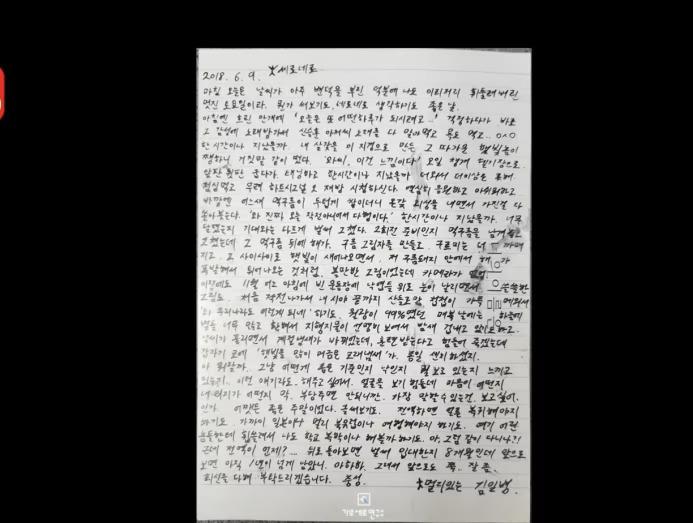 2018. 6. 9. ★세로네로
마침 오늘은 날씨가 아주 변덕을 부린 덕분에 나도 이리저리 휘둘려버린
멋진 토요일이라. 뭔가 써보기도, 네로네로 생각하기도 좋은 날.
아침엔 흐린 안개에 '오늘은 또 어떤하루가 되시려고..' 걱정하다가 바로
그 감성에 노래방가서 신승훈 아저씨 노래를 다 잊어먹고 목도 먹고.. ㅇㅅㅇ
한시간이나 지났을까. 내 살갗을 이 지경으로 만든 그 따가운 햇빛놈이
쨍하니 거짓말 같이 떴다. '와씨, 이건 느낌이다'
한시간이나 지났을까 더워서 더이상은
점심먹고 우려 하트시그널 오 재방 시청하신다. 열심히 응원하고 아쉬워하고
바깥엔 어느새 먹구름이 두텁게 쌓이더니 온갖 회상을 내면서 가진걸 다
쏟아붓는다. '와 진짜 오늘 작전아니어서 다행이다.' 한시간이나 지났을까. 너무
기대와는 다르게 벌써 그쳤다. 2회전 준비인지 먹구름을 남겨놓고
그쳤는데 그 먹구름 뒤에 해가. 구름 그림자를 만들고. 구름미는 더 까매
지고. 그 사이사이로 햇빛이 새어나오면서, 저 구름돼지 안에서 해가
폭발해서 튀어나오는 것처럼. 볼만한 그림이었는데 카메라가 없다.
11월 여고 아침에 빈 운동장에 낙엽들 위로 눈이 날리면서 쓸쓸한
그림도. 처음 작전나가서 내 시야 끝까지 산등고랑 첩첩이 가득 메워서
'와 우리나라도 이렇게 되네' 하기도. 월광이 99%였던 매복날에는 하늘에
별들 너무 많고 환해서 지형지물이 선명히 보여서 밤새 겁내고 있으라고.
날씨가 풀리면서 계절냄새가 바뀌었는데, 훈련받는다고 힘들어 죽겠는데
갑자기 코에 '햇빛을 많이 머금은 모래냄새'가. 봄일 샌이하셨지.
아 뭐랄까.. 그냥 어떤게 좋은 기준인지 낙인지 뭘 보고 있는지 느끼고
있는지.. 이런 얘기라도.. 해주고 싶어서. 얼굴을 보기 힘든데 마음이 어떤지
어떤지 막. 부담주면 안되니깐. 가장 말할수 있는건. 보고싶어.
인가. 어쨌든 좋은 주말이었다. 글써보기도. 전역하면 얼른 복귀해야지
하기도. 가까이 일본이나 멀리 북유럽이나 여행해야지 하기도. 여기 어린
놈들한테 휩쓸려서 나도 학교 복학이나 해볼까하기도. 아, 그럼 같이 다니나?!
근데 전역이 언제?.... 뒤로 돌아보면 벌써 입대한지 8개월인데 앞으로
보면 아직 1년이 넘게 남았네. 아하하. 그래서 앞으로도 쭉.. 잘 좀.
회신을 다해 부탁드리겠습니다. 충성. ★멀리있는 김일병.
가로세로연구소